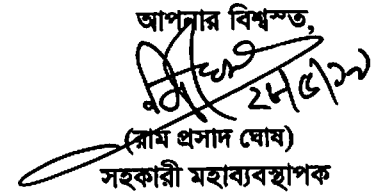 আপনার বিশ্বস্ত,
২৮/৫/১৭
(রাম প্রসাদ ঘোষ)
সহকারী মহাব্যবস্থাপক